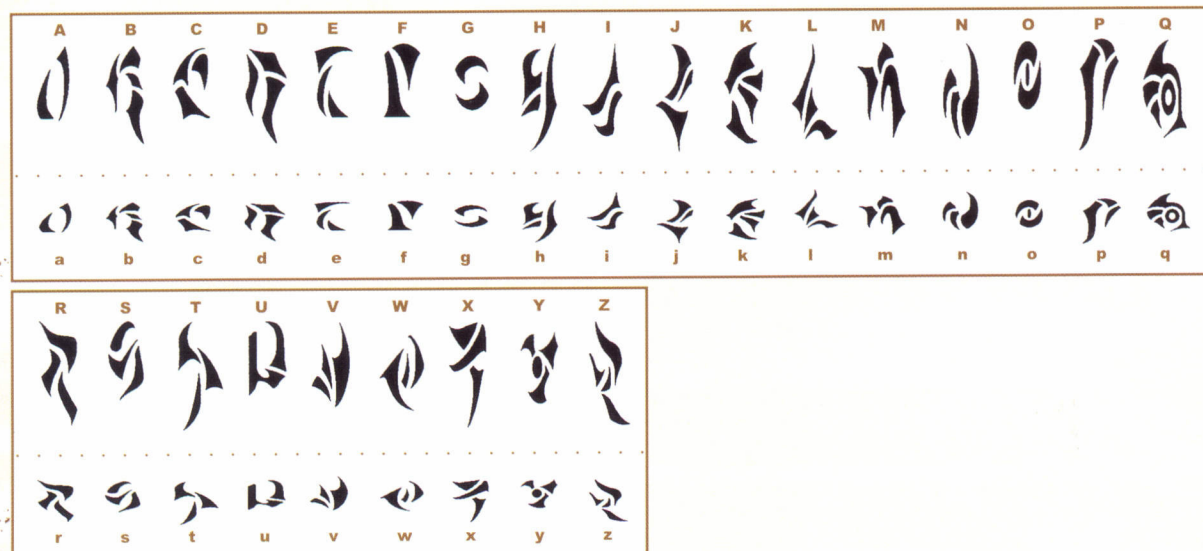 A B C D E F G H I J K L M N O P Q
a b c d e f g h i j k l m n o p q
R S T U V W X Y Z
r s t u v w x y z